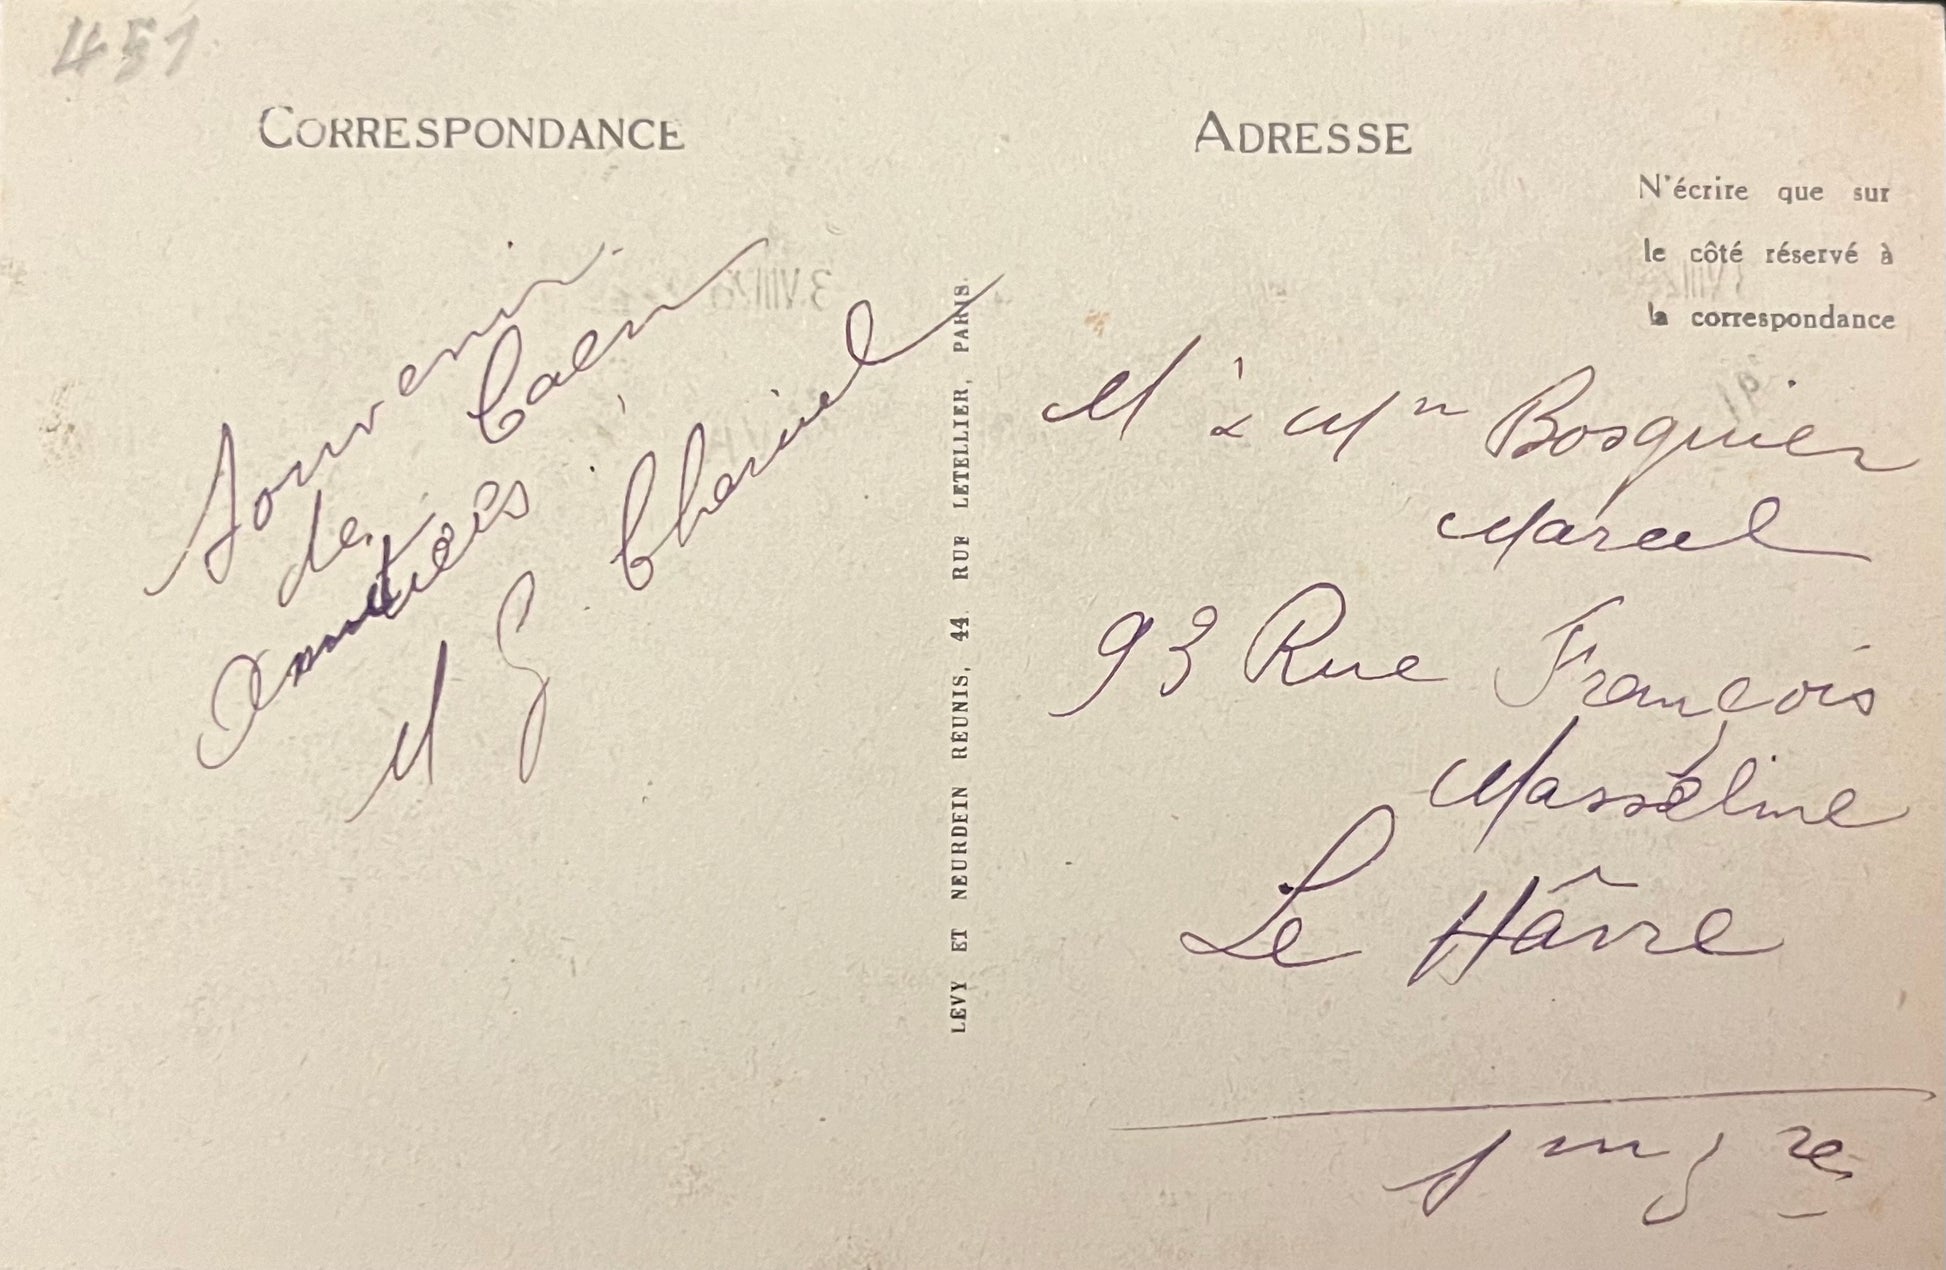 451
CORRESPONDANCE
Souvenir
de Caen
Amitiés
M G Cheruel
LEVY ET NEURDEIN REUNIS, 44, RUE LETELLIER, PARIS.
ADRESSE
N'écrire que sur
le côté réservé à
la correspondance
M & Mme Bosquier
Marcel
93 Rue François
Masseline
Le Hâvre
Sme Jre